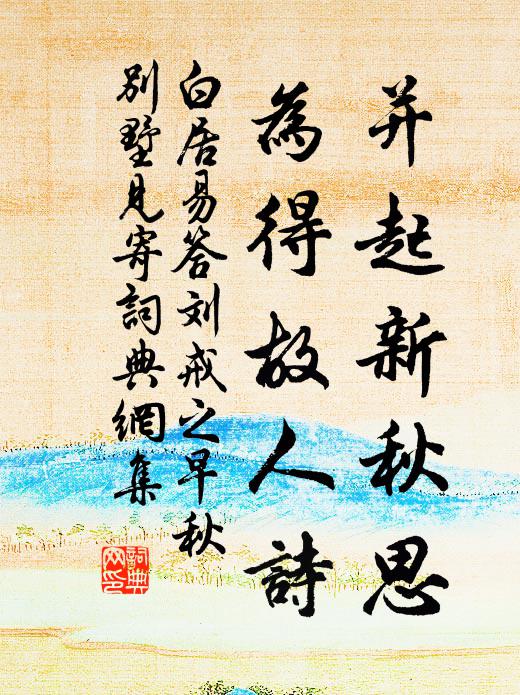 并起新秋思
為得故人詩
白居易答刘戒之早秋
別墅見寄詞典網集
詞典
网印